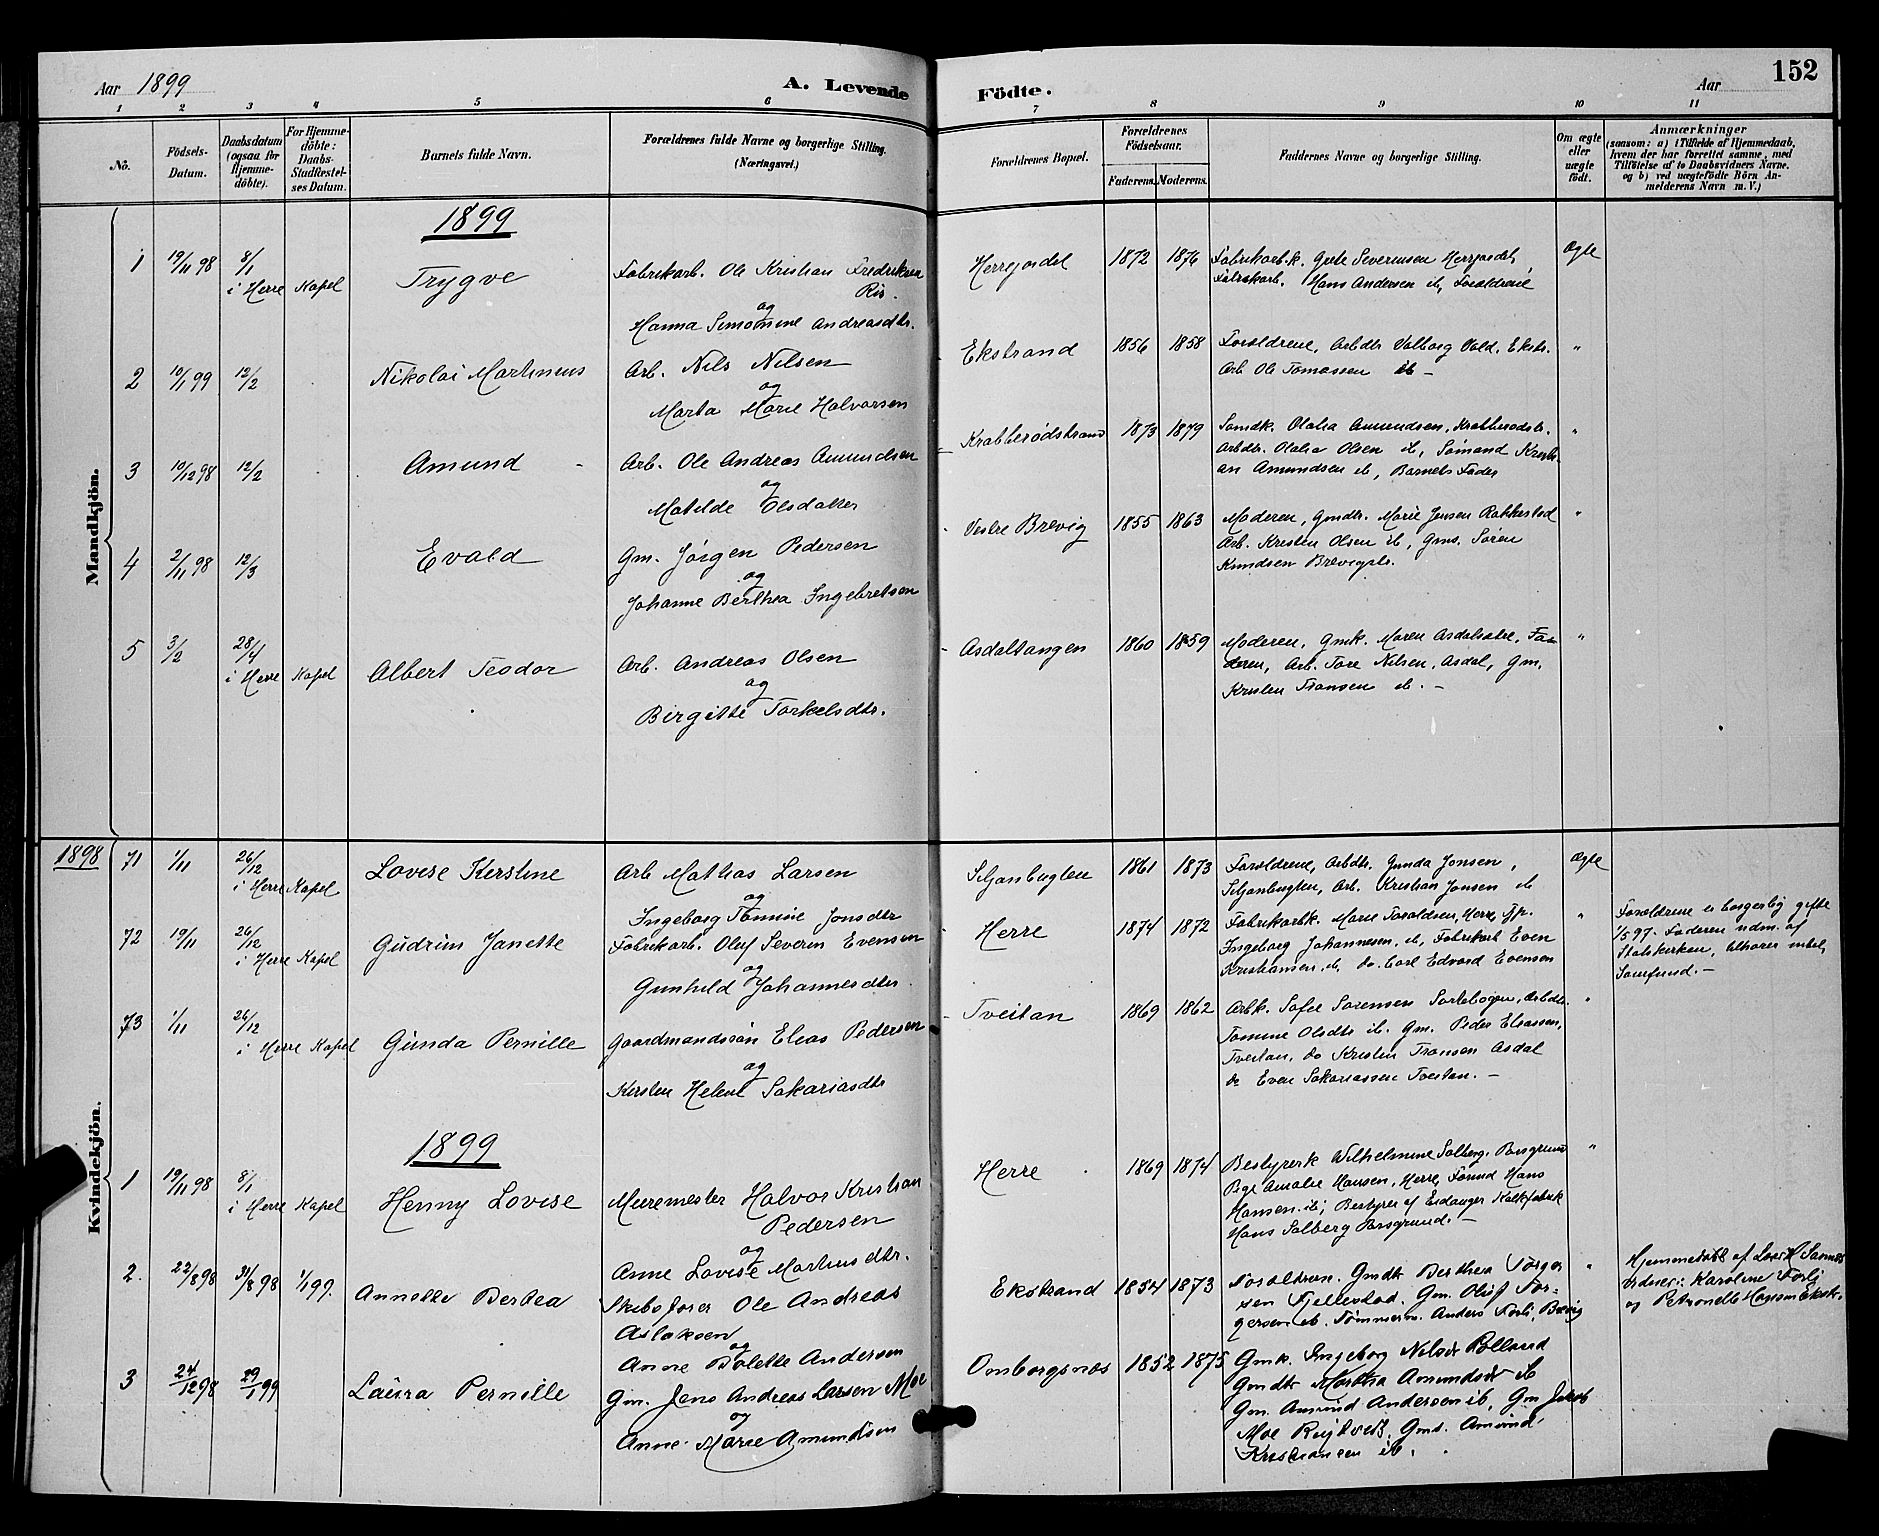 Aar 1899
A. Levende Födte.
Aar
152
1 2 3 4 5 6 7 8 9 10 11
No.
Födsels-Datum.
Daabsdatum (ogsaa for Hjemme-döbte).
For Hjemme-döbte: Daabs-Stadfæstel-ses Datum.
Barnets fulde Navn.
Forældrenes fulde Navne og borgerlige Stilling. (Næringsvei.)
Forældrenes Bopæl.
Forældrenes Födselsaar.
Faderens. Moderens.
Faddernes Navne og borgerlige Stilling.
Om ægte eller uægte födt.
Anmærkninger
(saasom: a) i Tilfælde af Hjemmedaab,
hvem der har forrettet samme, med
Tilföielse af to Daabsvidners Navne.
og b) ved uægtefödte Börn An-
melderens Navn m. V.)
Mandkjön.
1899
1 19/11 98 8/1 i Herre Kapel
Trygve
Fabrikarb. Ole Kristian Fredriksen
Ris.
og
Hanna Simonine Andreasdtr.
Herregaardel 1872 1876
Fabrikarbk. Severinsen
Fabrikarb. Hans Andersen ib, Forældrene
Ægte
2 10/1 99 12/2
Nikolai Martinius
Arb. Nils Nilsen
og
Marta Marie Halvorsen
Ekstrand 1856 1858
Forældrene, Arbdtr. Valborg Vold. Ekstr.
Arb. Ole Tomassen ib -
"
3 10/12 98 12/2
Amund
Arb. Ole Andreas Amundsen
og
Matilde Olsdatter
Krabberødstrand 1873 1879
Sømdk. Olalia Amundsen, Krabberødstr.
Arbdtr. Olalia Olsen ib, Sømand Kristi-
an Amundsen ib, Barnets Fader
"
4 2/11 98 12/3
Evald
Gm. Jørgen Pedersen
og
Johanne Berthea Ingebretsen
Vestre Brevig 1855 1863
Moderen, Gmdtr. Marie Jensen Rakkestad
Arb. Kristen Olsen ib, Gms. Søren
Knudsen Brevigstr.
"
5 3/2 28/4 i Herre Kapel
Albert Teodor
Arb. Andreas Olsen
og
Birgitte Torkelsdtr.
Asdaltangen 1860 1859
Moderen, Gmk. Maren Asdal, Fa-
deren, Arb. Tore Nilsen, Asdal, Gm.
Kristen Fransen ib. -
"
Kvindekjön.
1898
71 1/11 26/12 i Herre Kapel
Lovise Kirstine
Arb Mathias Larsen
og
Ingeborg Tomine Jonsdtr
Seljanbugten 1861 1873
Forældrene, Arbdtr. Gunda Jonsen,
Seljanbugten, Arb. Kristian Jonsen ib
Ægte
72 19/11 26/12 i Herre Kapel
Gudrun Janette
Fabrikarb. Oluf Severin Evensen
og
Gunhild Johannesdtr.
Herre 1874 1872
Fabrikarbk. Marie Toraldsen, Herre, Tjp.
Ingeborg Johannesen, ib, Fabrikarb Even
Kristiansen, ib, do. Carl Edvard Evensen
"
Forældrene er borgerlig gifte
1/5 97. Faderen udm. af
Statskirken, tilhører intet
Samfund. -
73 1/11 26/12 i Herre Kapel
Gunda Pernille
Gaardmandssøn Elias Pedersen
og
Kirsten Helene Sakariasdtr
Tveitan 1869 1862
Arbk. Sofie Sørensen Sortebogen, Arbdtr.
Tomine Olsdtr ib. Gm. Peder Eliassen,
Tveitan, do Kristen Fransen Asdal
do Even Sakariassen Tveitan. -
"
1899
1 19/11 98 8/1 i Herre Kapel
Henny Lovise
Muremester Halvor Kristian
Pedersen
og
Anne Lovise Mortensdtr.
Herre 1869 1874
Bestyrerk Wilhelmine Solberg. Porsgrund
Pige Amalie Hansen, Herre, Formd Hans
Hansen ib; Bestyrer af Eidanger Kalkfabrik
Hans Solberg Porsgrund. -
"
2. 22/8 98 31/8 98 1/1 99.
Annette Bertea
Skibsfører Ole Andreas
Aslaksen
og
Anne Bolette Andersen
Ekstrand 1854 1873
Forældren. Gmdtr Berthea Torger
sen Fjellestad. Gm. Oluf Tor-
gersen ib. Tømmerm. Anders Forli, Brevig
"
Hjemmedøbt af
Karoline Forli
og Petronelle Ekstr.
3 24/12 98 29/1 99
Laura Pernille
Gm. Jens Andreas Larsen Moe
og
Anne Marie Amundsen
Omborgsnæs 1852 1875
Gmk. Ingeborg Nilsdtr Rolland
Gmdtr Martha Amundsdtr ib
Gm. Amund Andersen ib, Gm Jakob
Moe, Gms. Amund
Kristiansen ib.